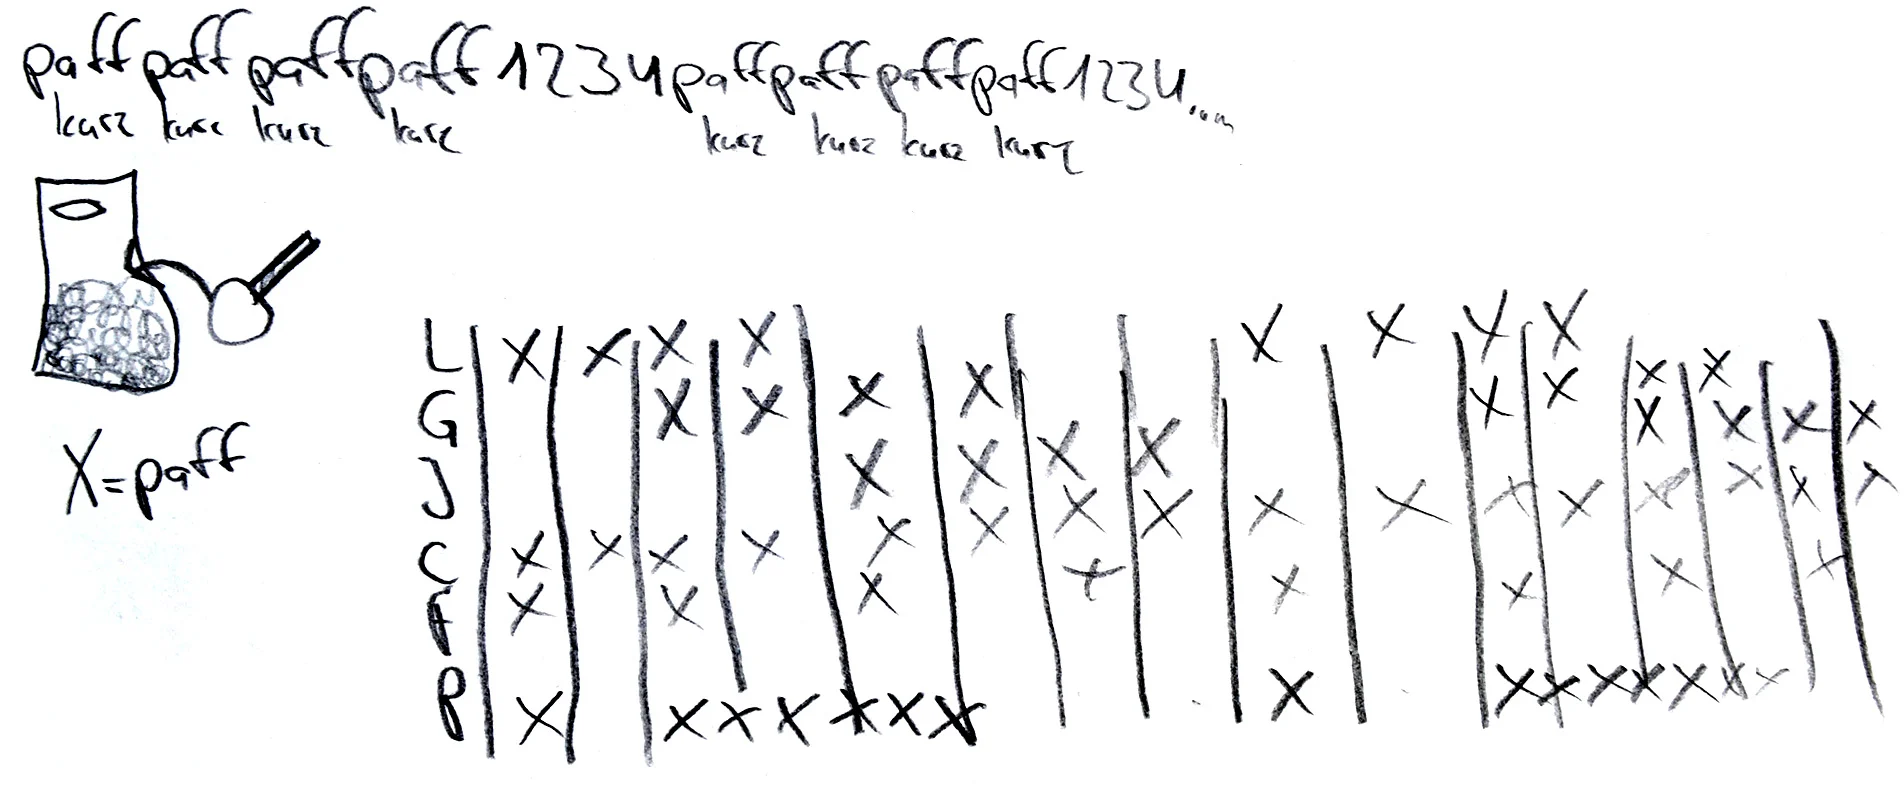 paff paff paff paff 1 2 3 4 paff paff paff paff 1 2 3 4 ...
kurz kurz kurz kurz kurz kurz kurz kurz
X = paff
L X X X X X X X X X X
G X X X X X X X X X X X
J X X X X X X X X X X X X
C X X X X X X X X X
F X X X
P X X X X X X X X X X X X X X X